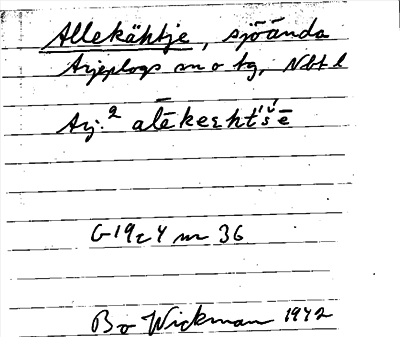 Allekähtje, sjöända
Arjeplogs sn o tg, Nbt l
Arj.² alēkeεht́š́ē
G 19 z 4 nr 36
Bo Wickman 1942